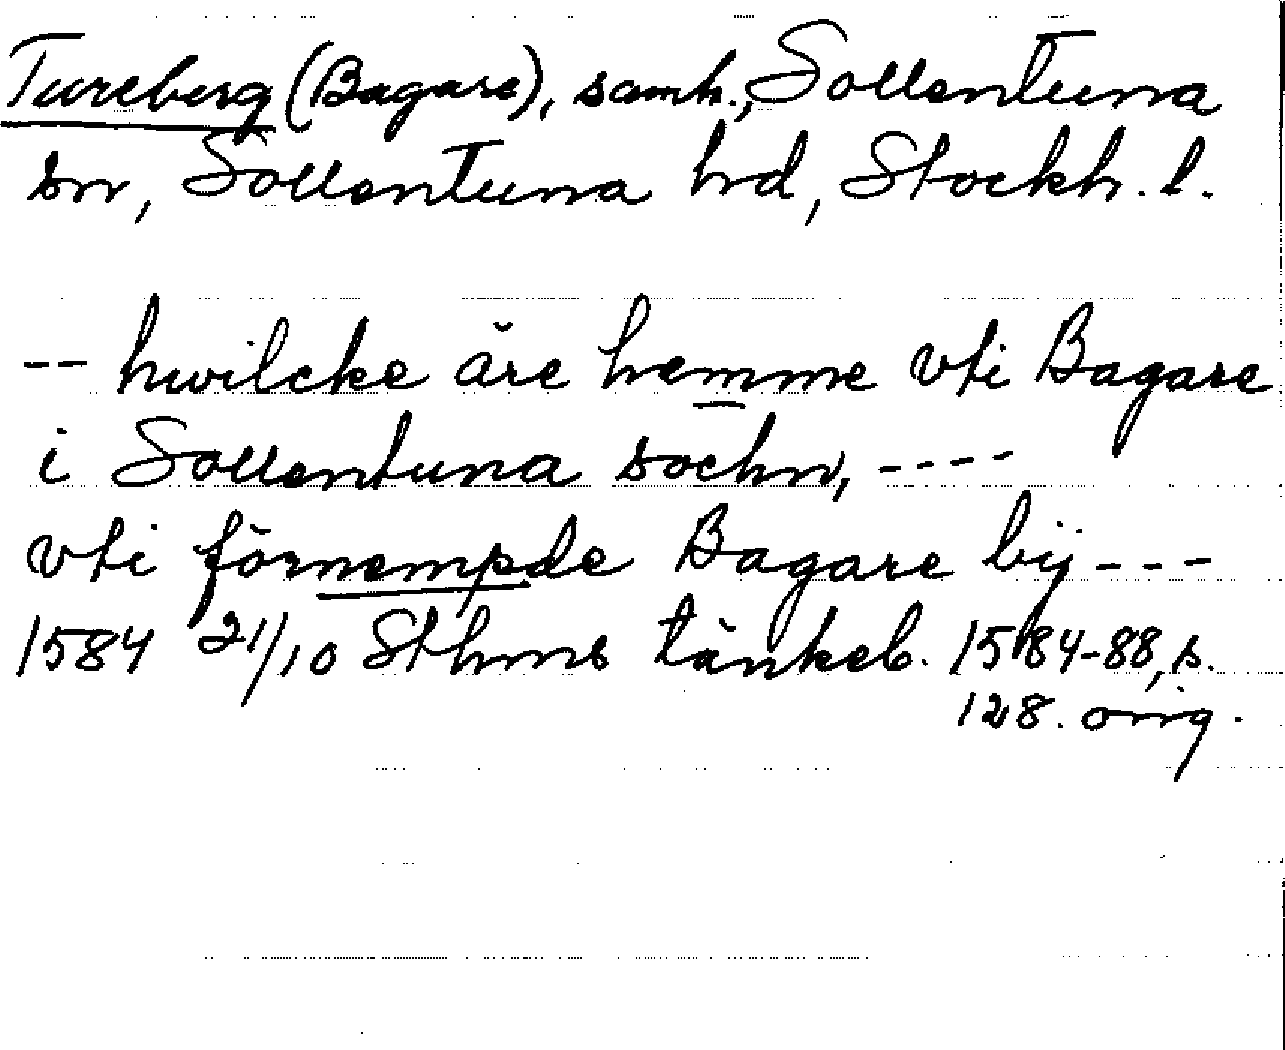 Tureberg (Bagare), samh., Sollentuna
sn, Sollentuna hd, Stockh. l.
-- hwilcke äre hemme vti Bagare
i Sollentuna sochn, ----
vti förnempde Bagare bÿ ---
1584 21/10 Sthms tänkeb. 1584-88, s.
128. orig.